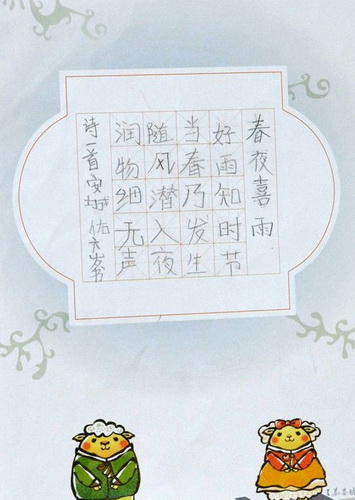 春夜喜雨
好雨知时节
当春乃发生
随风潜入夜
润物细无声
诗一首